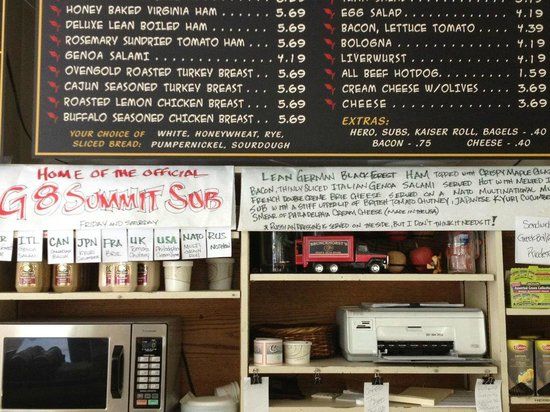 HONEY BAKED VIRGINIA HAM 5.69
DELUXE LEAN BOILED HAM 5.69
ROSEMARY SUNDRIED TOMATO HAM 5.69
GENOA SALAMI 4.19
OVENGOLD ROASTED TURKEY BREAST 5.69
CAJUN SEASONED TURKEY BREAST 5.69
ROASTED LEMON CHICKEN BREAST 5.69
BUFFALO SEASONED CHICKEN BREAST 5.69
YOUR CHOICE OF SLICED BREAD:
WHITE, HONEYWHEAT, RYE,
PUMPERNICKEL, SOURDOUGH
EGG SALAD 4.19
BACON, LETTUCE TOMATO 4.39
BOLOGNA 4.19
LIVERWURST 4.19
ALL BEEF HOTDOG 1.59
CREAM CHEESE W/OLIVES 3.69
CHEESE 3.69
EXTRAS:
HERO, SUBS, KAISER ROLL, BAGELS - .40
BACON - .75 CHEESE - .40
HOME OF THE OFFICIAL
G8 SUMMIT SUB
FRIDAY AND SATURDAY
LEAN GERMAN BLACK FOREST HAM TOPPED WITH CRISPY MAPLE
BACON, THINLY SLICED ITALIAN GENOA SALAMI SERVED HOT WITH MELTED
FRENCH DOUBLE CREME BRIE CHEESE SERVED ON A NATO MULTINATIONAL
SUB WITH A STIFF UPPER LIP OF BRITISH TOMATO CHUTNEY, JAPANESE KYURI CUCUMBER
SMEAR OF PHILADELPHIA CREAM CHEESE (MADE IN THE USA)
* RUSSIAN DRESSING IS SERVED ON THE SIDE, BUT I DON'T THINK IT NEEDS IT!
ITL
CAN
JPN
FRA
UK
USA
NATO
RUS
Lipton